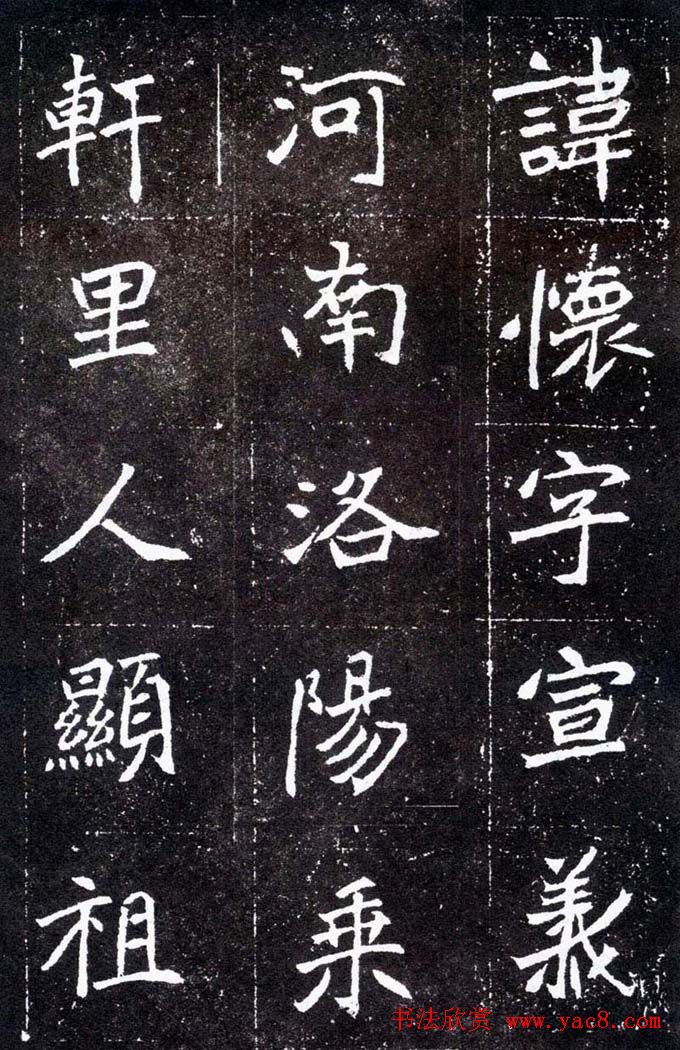 諱懷字宣義
河南洛陽乗
軒里人顯祖
书法欣赏 www.yac8.com